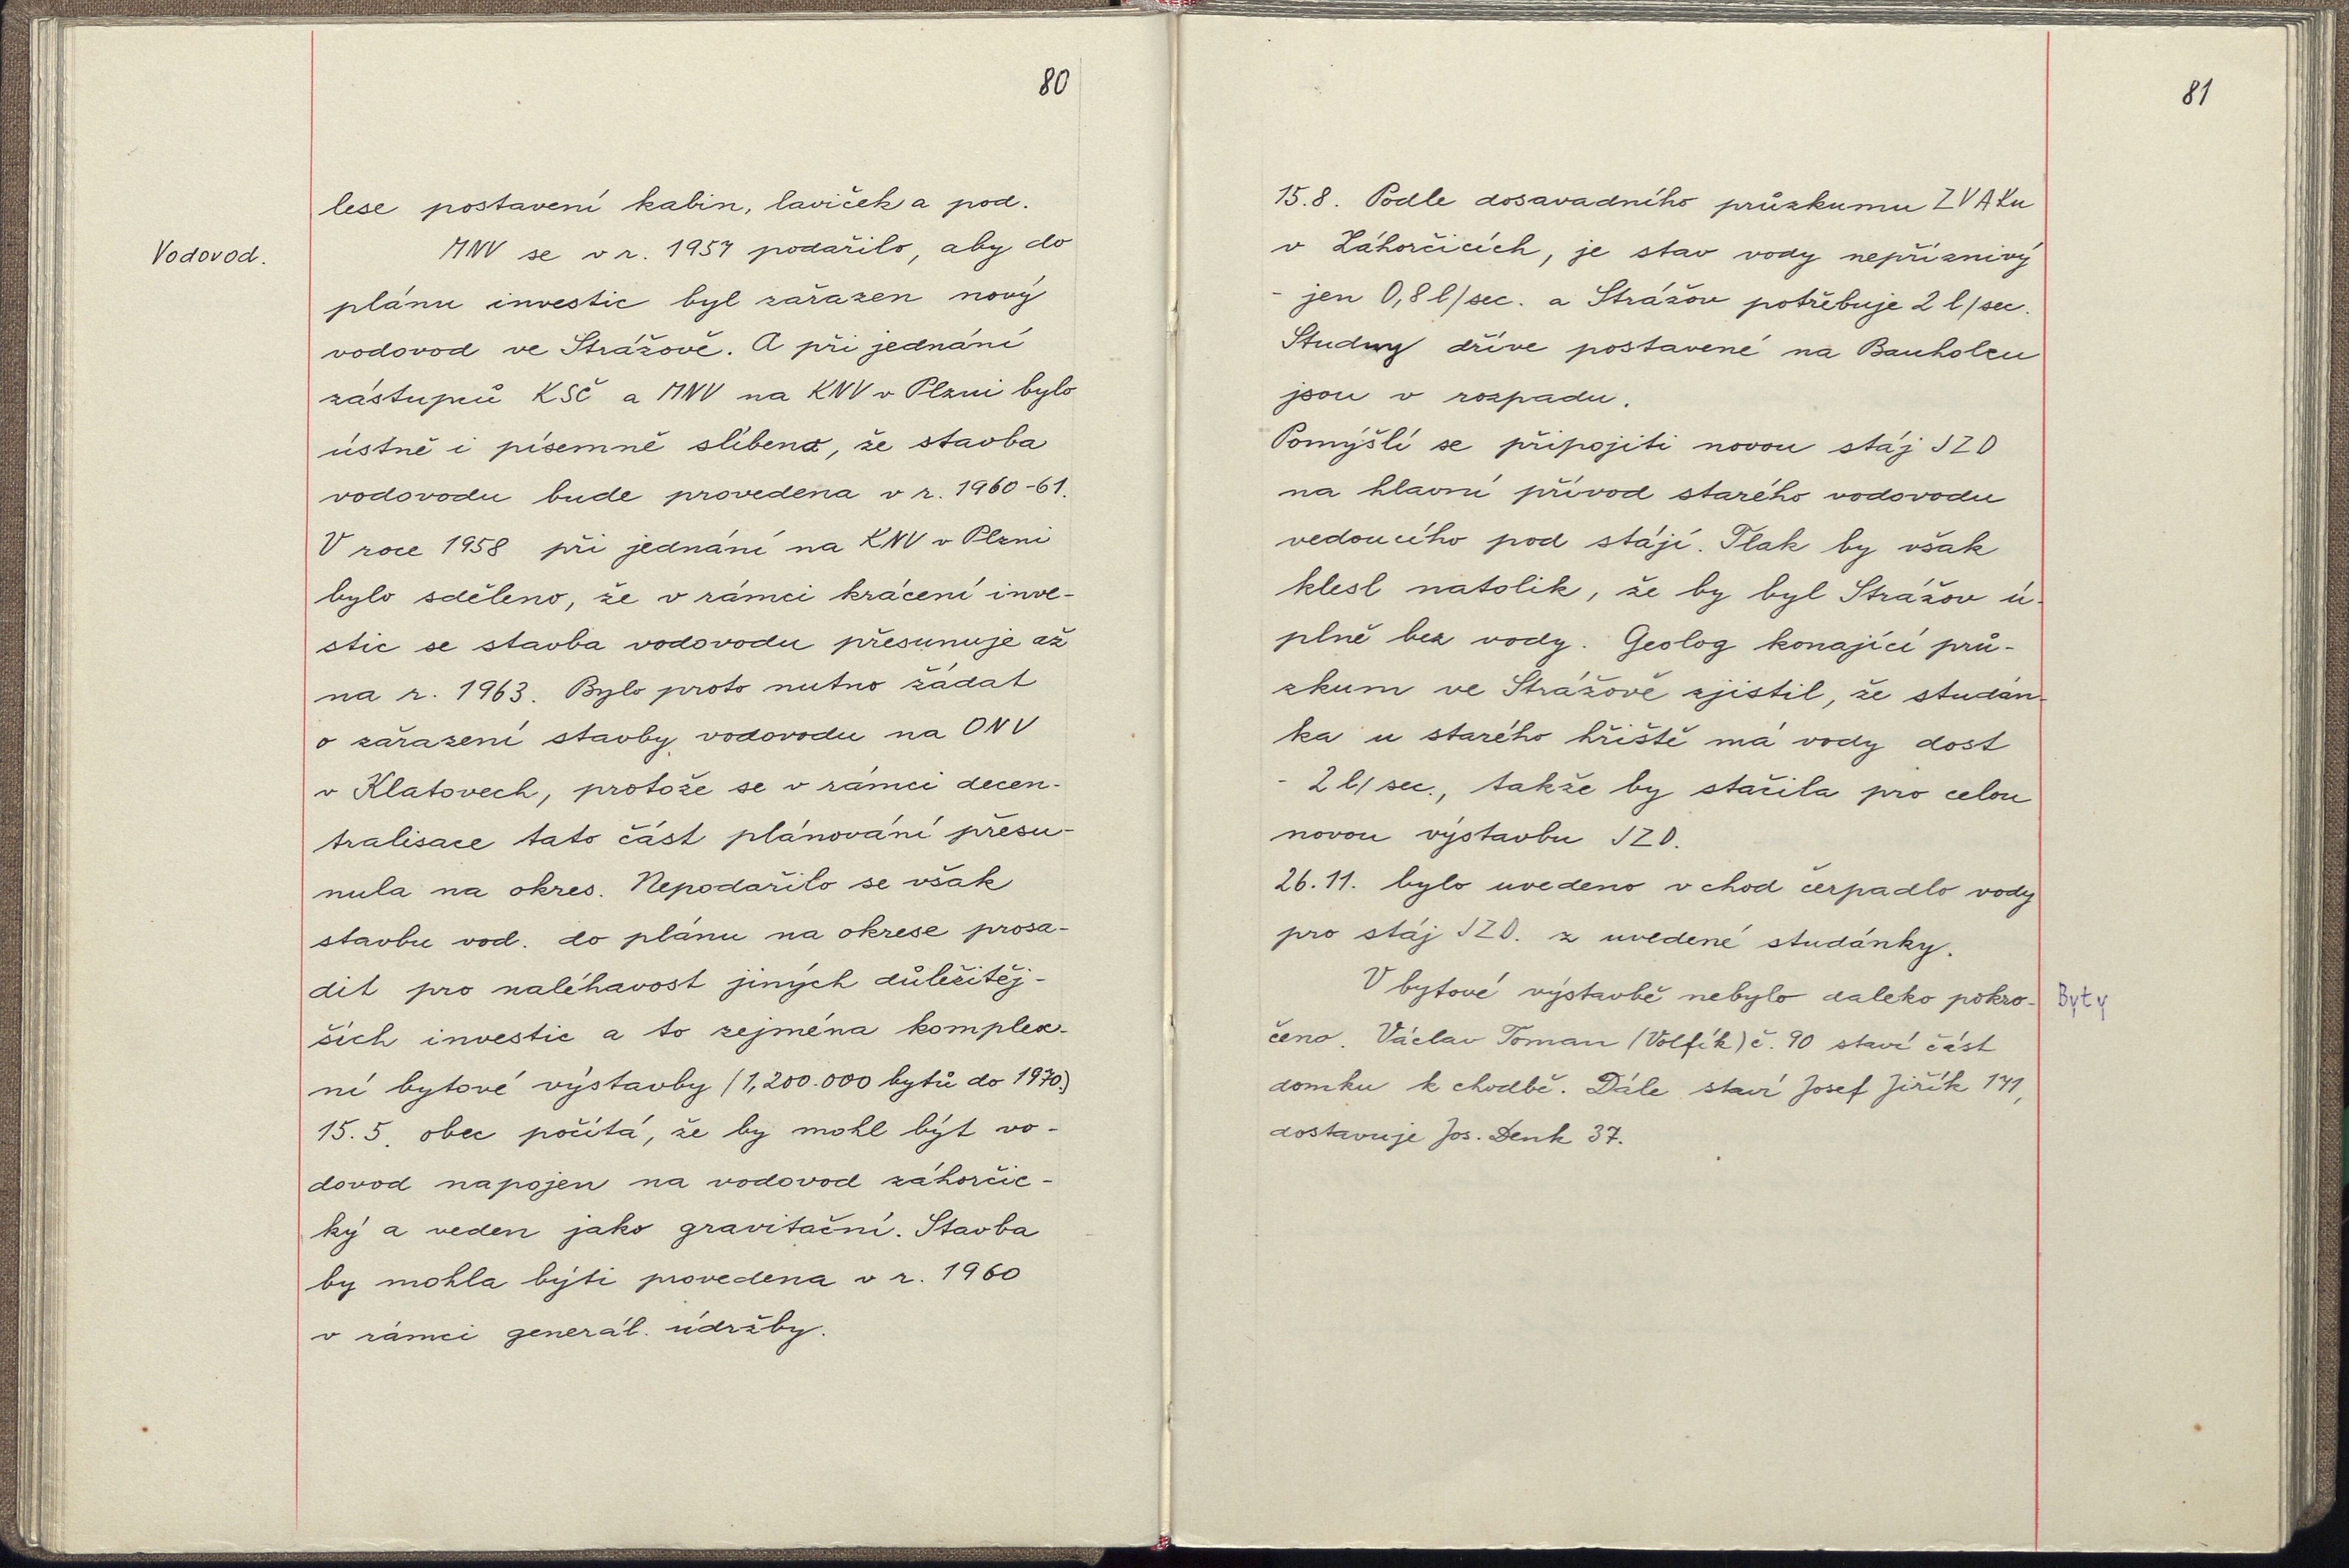 80
lese postavení kabin, laviček a pod.
Vodovod.
MNV se v r. 1957 podařilo, aby do
plánu investic byl zařazen nový
vodovod ve Strážově. A při jednání
zástupců KSČ a MNV na KNV v Plzni bylo
ústně i písemně slíbeno, že stavba
vodovodu bude provedena v r. 1960-61.
V roce 1958 při jednání na KNV v Plzni
bylo sděleno, že v rámci krácení inve-
stic se stavba vodovodu přesunuje až
na r. 1963. Bylo proto nutno žádat
o zařazení stavby vodovodu na ONV
v Klatovech, protože se v rámci decen-
tralisace tato část plánování přesu-
nula na okres. Nepodařilo se však
stavbu vod. do plánu na okrese prosa-
dit pro naléhavost jiných důležitěj-
ších investic a to zejména komplex-
ní bytové výstavby (1,200.000 bytů do 1970)
15.5. obec počítá, že by mohl být vo-
dovod napojen na vodovod záhorčic-
ký a veden jako gravitační. Stavba
by mohla býti provedena v r. 1960
v rámci generál. údržby.
81
15.8. Podle dosavadního průzkumu ZVAKu
v Záhorčicích, je stav vody nepříznivý
- jen 0,8 l/sec. a Strážov potřebuje 2 l/sec.
Studny dříve postavené na Bauholcu
jsou v rozpadu.
Pomýšlí se připojiti novou stáj JZD
na hlavní přívod starého vodovodu
vedoucího pod stájí. Tlak by však
klesl natolik, že by byl Strážov ú-
plně bez vody. Geolog konající prů-
zkum ve Strážově zjistil, že studán-
ka u starého hřiště má vody dost
- 2 l/sec., takže by stačila pro celou
novou výstavbu JZD.
26.11. bylo uvedeno v chod čerpadlo vody
pro stáj JZD. z uvedené studánky.
V bytové výstavbě nebylo daleko pokro-
Byty
čeno. Václav Toman (Volfík) č. 90 staví část
domku k chodbě. Dále staví Josef Jiřík 141,
dostavuje Jos. Denk 37.